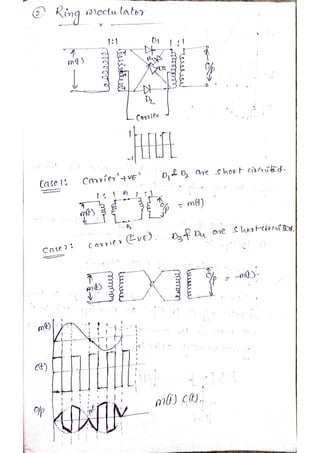 ② Ring modulator
1:1 D1 1:1
m(t) o/p
D2
Carrier
1
Case 1: Carrier '+VE' D1 & D2 are short circuited.
1:1 1:1
m(t) o/p = m(t)
Case 2: carrier (-VE). D3 & D4 are short circuited.
m(t) o/p = -m(t)
m(t)
c(t)
o/p m(t) c(t).